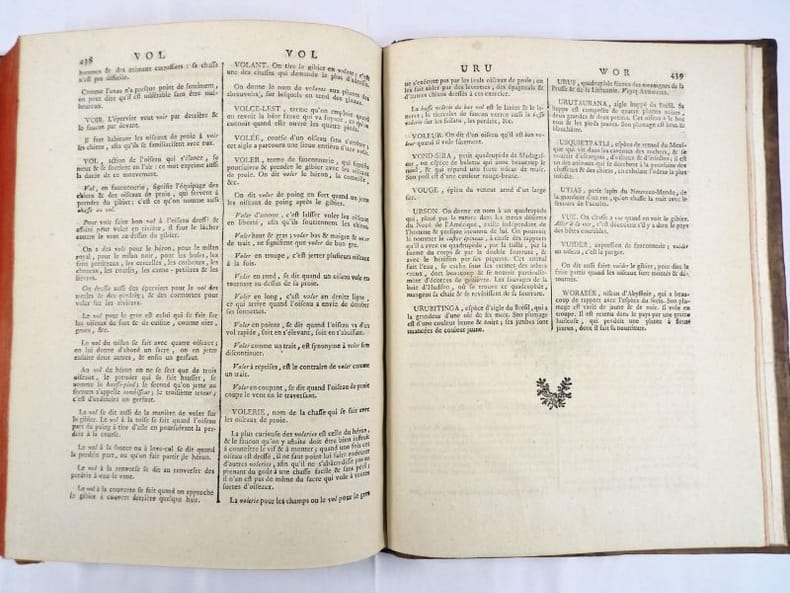 238 VOL VOL
hommes & des animaux carnassiers : sa chasse
n'est pas difficile.
Comme l'unau n'a presque point de sentiment,
on peut dire qu'il est misérable sans être mal-
heureux.
VOIR. L'épervier veut voir par derrière & le
faucon par devant.
Il faut habituer les oiseaux de proie à voir
les chiens, afin qu'ils se familiarisent avec eux.
VOL, action de l'oiseau qui s'élance, se
meut & se soutient en l'air : ce mot exprime aussi
la durée de ce mouvement.
Vol, en fauconnerie, signifie l'équipage des
chiens & des oiseaux de proie, qui servent à
prendre du gibier : c'est ce qu'on nomme aussi
chasse au vol.
Pour voir faire bon vol à l'oiseau dressé &
affaité pour voler en rivière, il faut le lâcher
contre le vent au-dessus du gibier.
On a des vols pour le héron, pour le milan
royal, pour le milan noir, pour les buses, les
faux perdrieaux, les cercelles, les corbeaux, les
chevaux, les courlis, les canne-petières & les
lièvres.
On dresse aussi des éperviers pour le vol des
merles & des perdrix ; & des cormorets pour
voler sur les rivières.
Le vol pour le gros est celui qui se fait sur
les oiseaux de fort & de cuisine, comme oies,
grues, &c.
Le vol du milan se fait avec quatre oiseaux ;
en lui donne d'abord un sacre, on en jette
ensuite deux autres, & enfin un gerfaut.
Au vol du héron on ne se sert que de trois
oiseaux, le premier qui se fait hausser, se
nomme le hausse-pied ; le second qu'on jette au
secours s'appelle tombisseur ; le troisième teneur ;
c'est d'ordinaire un gerfaut.
Le vol se dit aussi de la manière de voler sur
le gibier. Le vol à la toise se fait quand l'oiseau
part du poing à tire d'aile en poursuivant la per-
drix à la course.
Le vol à la source ou à leve-cul se dit quand
la perdrix part, ou qu'on fait partir le héron.
Le vol à la renverse se dit au renverser des
perdrix à vau le vent.
Le vol à la couverte se fait quand on approche
le gibier à couvert derrière quelque haie.
VOLANT. On tire le gibier en volant ; c'est
une des chasses qui demande le plus d'adresse.
On donne le nom de volans aux pliants des
abreuvoirs, sur lesquels on tend des gluaux.
VOLCE-LEST, terme qu'on emploie quand
on revoit la bête fauve qui va fuyant, &
quand elle ouvre les quatre pieds.
VOLÉE, course d'un oiseau sans s'arrêter ;
cet aigle a parcouru une lieue entière d'une volée.
VOLER, terme de fauconnerie, qui signifie
poursuivre & prendre le gibier avec des oiseaux
de proie. On dit voler le héron, la corneille,
&c.
On dit voler de poing en fort quand on jette
les oiseaux de poing après le gibier.
Voler d'amont, c'est laisser voler les oiseaux
en liberté, afin qu'ils soutiennent les chiens.
Voler haut & gras ; voler bas & maigre & voler
de trait, ne signifient que voler de bon gré.
Voler en troupe, c'est jetter plusieurs oiseaux
à la fois.
Voler en rond, se dit quand un oiseau vole en
tournant au dessus de la proie.
Voler en long, c'est voler en droite ligne ;
ce qui arrive quand l'oiseau a envie de dérober
ses sonnettes.
Voler en pointe, se dit quand l'oiseau va d'un
vol rapide, soit en s'élevant, soit en s'abaissant.
Voler comme un trait, est synonyme à voler sans
discontinuer.
Voler à reprises, est le contraire de voler comme
un trait.
Voler en coupant, se dit quand l'oiseau de proie
coupe le vent en le traversant.
VOLERIE, nom de la chasse qui se fait avec
les oiseaux de proie.
La plus curieuse des voleries est celle du héron,
& le faucon qu'on y affaite doit être bien instruit
à connoître le vif & à monter ; quand une fois cet
oiseau est dressé, il ne faut point lui faire exécuter
d'autres voleries, afin qu'il ne s'abâtardisse pas en
prenant du goût à une chasse facile & sans péril ;
il n'en est pas de même du sacre qui vole à toutes
sortes d'oiseaux.
La volerie pour les champs ou le vol pour le gros
URU WOR 439
ne s'exécute pas par les seuls oiseaux de proie ; on
les fait aider par des levriers, des épagneuls &
d'autres chiens dressés à cet exercice.
La basse volerie du bas vol est le lanier & le la-
neret ; le tiercelet de faucon exerce aussi la basse
volerie sur les faisans, les perdrix, &c.
VOLEUR. On dit d'un oiseau qu'il est bon vo-
leur quand il vole sûrement.
VOND-SIRA, petit quadrupède de Madagas-
car, en espèce de belette qui aime beaucoup le
miel, & qui répand une forte odeur de musc.
Son poil est d'une couleur rouge-brune.
VOUGE, épieu du veneur armé d'un large
fer.
URSON. On donne ce nom à un quadrupède
qui, placé par la nature dans les terres désertes
du Nord de l'Amérique, existe indépendant de
l'homme & presque inconnu de lui. On pourroit
le nommer le castor épineux, à cause des rapports
qu'il a avec ce quadrupède, par la taille, par la
forme du corps & par la double fourrure, &
avec le hérisson par ses piquans. Cet animal
fuit l'eau, se cache sous les racines des arbres
creux, dort beaucoup & se nourrit particulié-
ment d'écorces de genièvre. Les sauvages de la
baie d'Hudson, où se trouve ce quadrupède,
mangent sa chair & se revêtissent de sa fourrure.
URUBITINGA, espèce d'aigle du Brésil, qui a
la grandeur d'une oie de six mois. Son plumage
est d'une couleur brune & noire ; ses jambes sont
nuancées de couleur jaune.
URUS, quadrupède féroce des montagnes de la
Prusse & de la Lithuanie. Voyez AUROCHS.
URUTAURANA, aigle huppé du Brésil. Sa
huppe est composée de quatre plumes noires,
deux grandes & deux petites. Cet oiseau a le bec
noir & les pieds jaunes. Son plumage est brun &
blanchâtre.
espèce de renard du Mexi-
que qui vit dans les cavernes des rochers, & se
nourrit d'escargots, d'oiseaux & d'insectes ; il est
la dévastation des chasseurs &
des chiens, en exhalant l'odeur la plus
infecte.
UTIAS, petit lapin du Nouveau-Monde, de
la grandeur d'un rat, qu'on chasse la nuit avec le
secours de l'acudia.
VUE. On chasse à vue quand on voit le gibier.
Aller à la vue, c'est découvrir s'il y a dans le pays
des bêtes courables.
VUIDER, expression de fauconnerie ; vuider
un oiseau, c'est le purger.
On dit aussi faire vuider le gibier, pour dire le
faire partir quand les oiseaux sont montés & dé-
tournés.
WORABÉE, oiseau d'Abyssinie, qui a beau-
coup de rapport avec l'espèce du serin. Son plu-
mage est varié de jaune & de noir. Il vole en
troupe. Il est retenu dans le pays par une graine
huileuse, qui produit une plante à fleurs
jaunes, dont il fait sa nourriture.